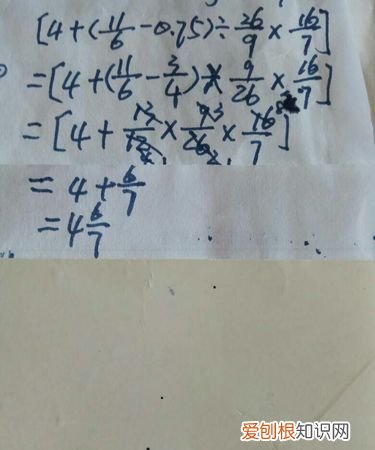 [4+(11/6-0.75)÷26/9×16/7]
=[4+(11/6-3/4)×9/26×16/7]
=[4+13/12×9/26×16/7]
=4+6/7
=4 6/7
爱刨根知识网